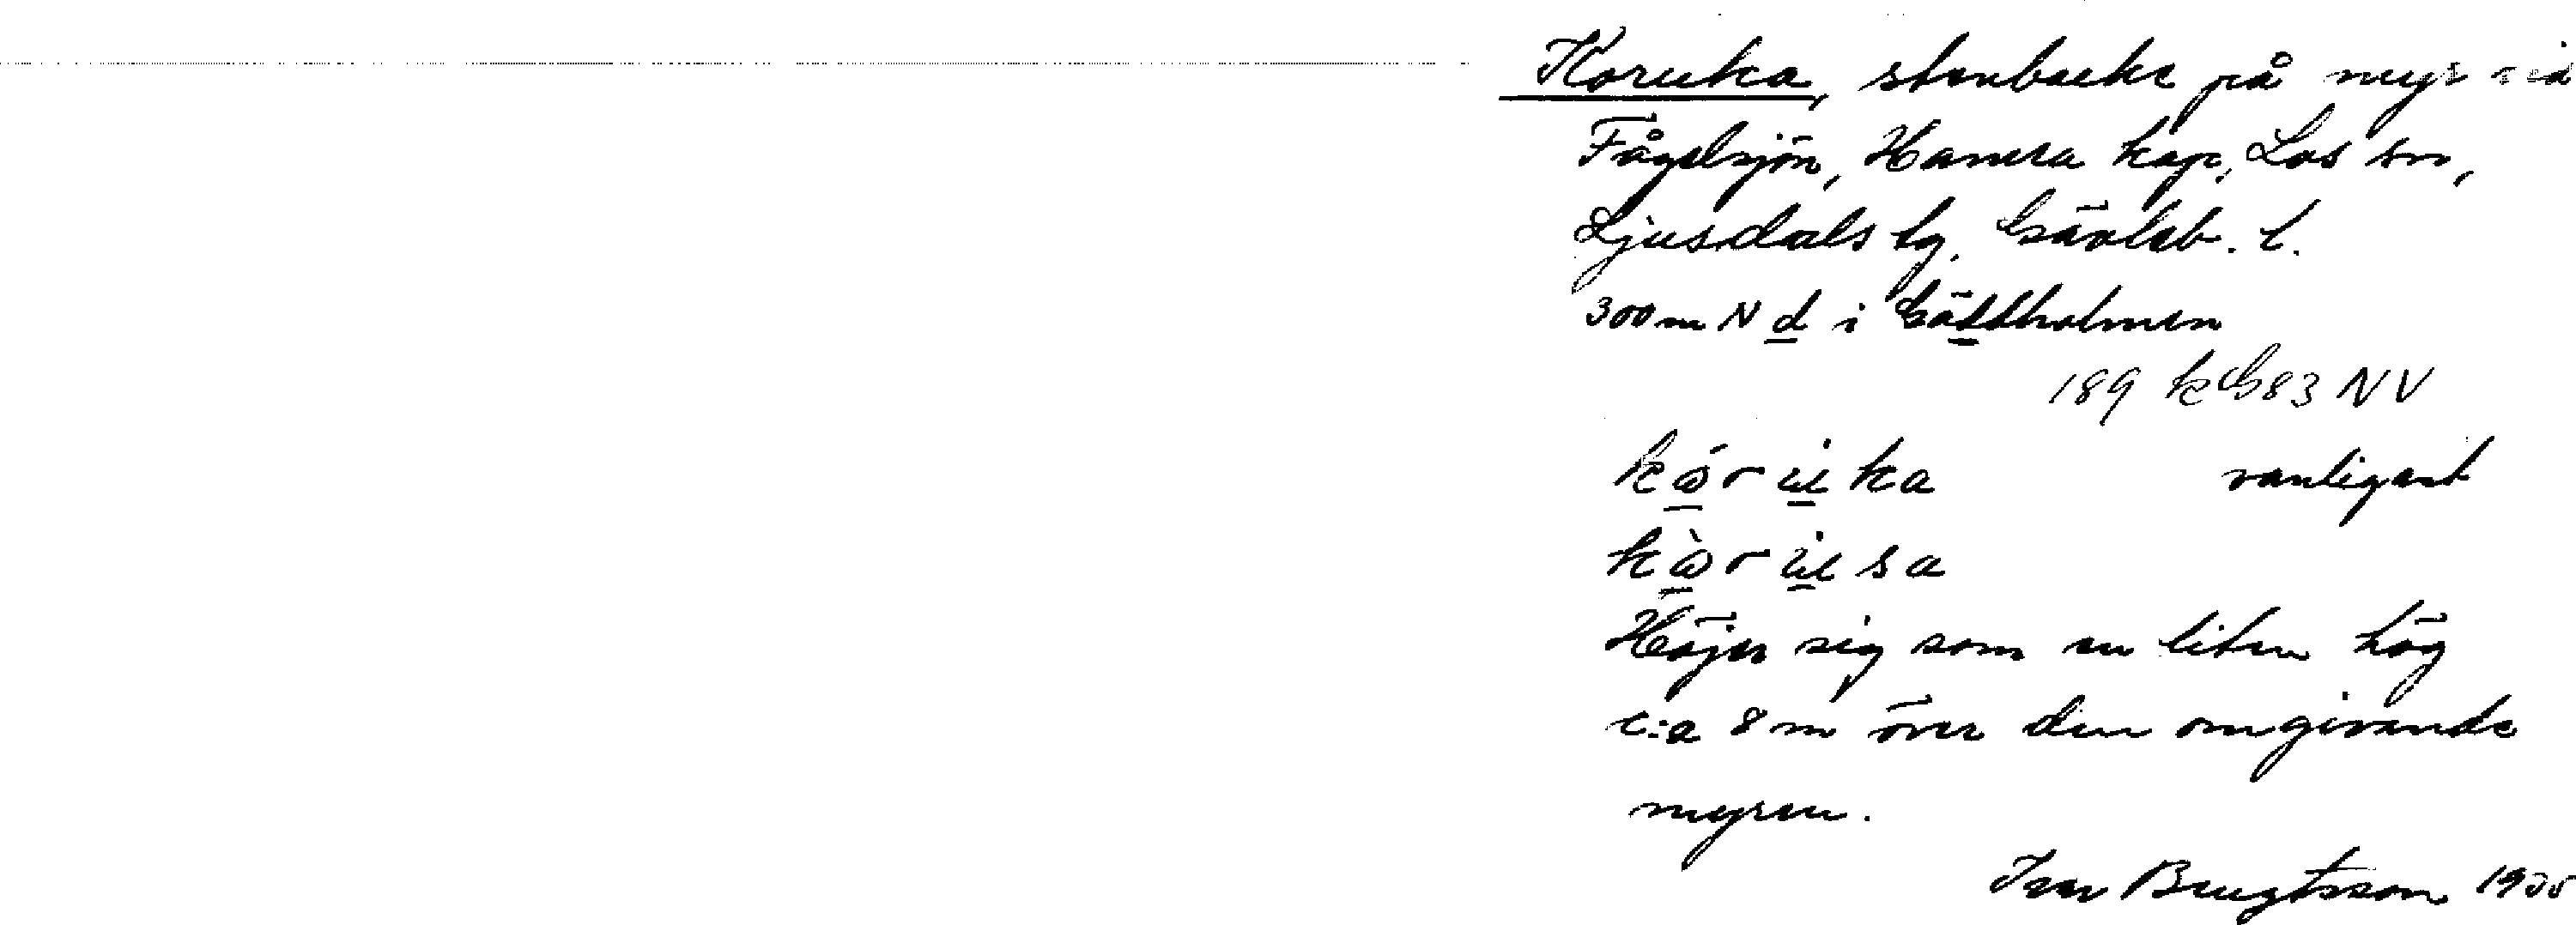 Koruka, stenbacke på myr vid
Fågelsjön, Hamra kap, Los sn,
Ljusdals tg. Gävleb. l.
300 m N d i Gåssholmen
189 83 NV
vanligast
Höjer sig som en liten hög
c:a 8 m över den omgivande
myren.
Bengtsson